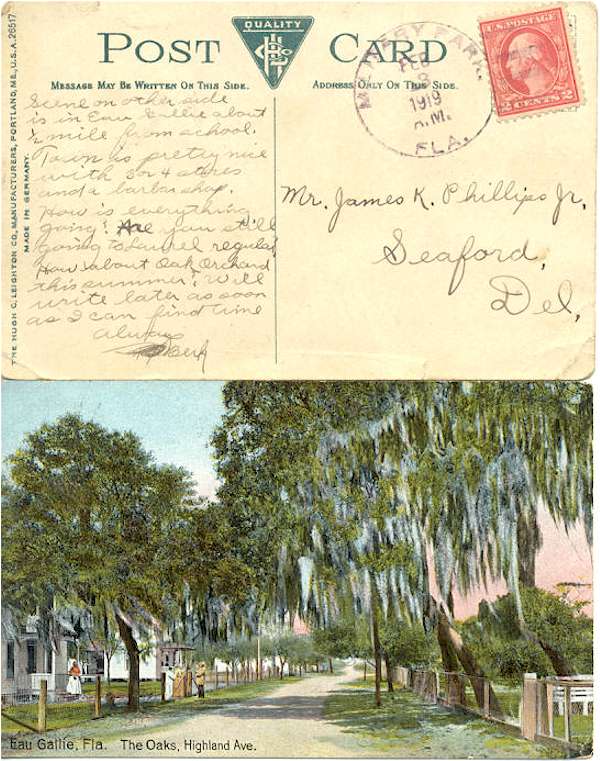 QUALITY
POST CARD
MESSAGE MAY BE WRITTEN ON THIS SIDE. ADDRESS ONLY ON THIS SIDE.
THE HUGH C. LEIGHTON CO., MANUFACTURERS, PORTLAND, ME., U.S.A. 26517
MADE IN GERMANY.
Scene on other side
is in Eau Gallie about
1/2 mile from school.
Town is pretty nice
with 3 or 4 stores
and a barber shop.
How is everything
going? Are you still
going to Laurel regular
How about Oak Orchard
this summer? Will
write later as soon
as I can find time
always
MILITARY PARK
FEB
8
1919
A.M.
FLA.
U.S. POSTAGE
2 CENTS 2
Mr. James K. Phillips Jr.
Seaford,
Del.
Eau Gallie, Fla. The Oaks, Highland Ave.